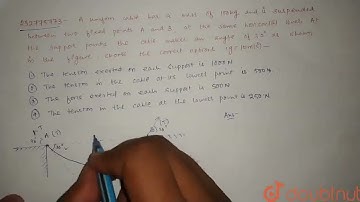 A uniform cable has a mass of 100kg and is suspended
between two fixed points A and B at the same horizontal level. At
the support points the cable makes an angle of 30° as shown
in the figure. Choose the correct options (g=10m/s²)-
① The tension exerted on each support is 1000N
② The tension in the cable at its lowest point is 500√3
③ The force exerted on each support is 500N
④ The tension in the cable at the lowest point is 250N
Ans-
A (T)
30°
doubtnut